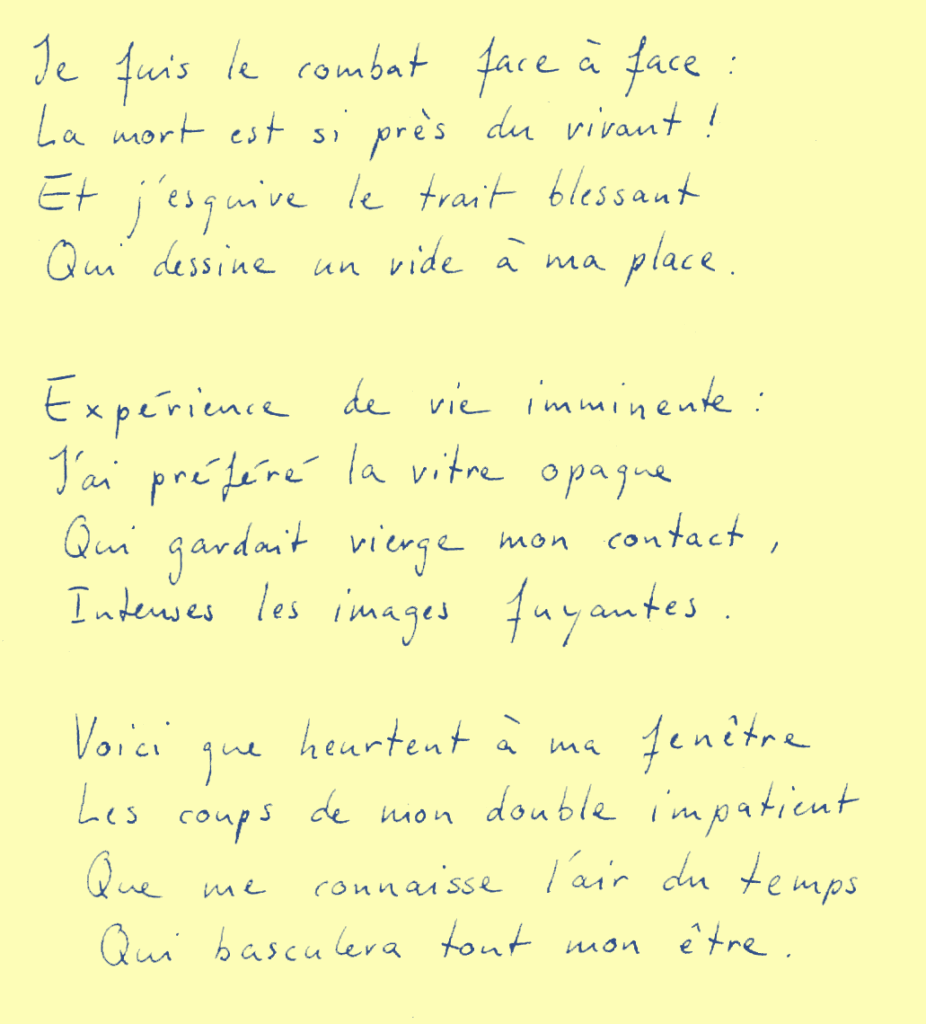 Je fuis le combat face à face :
La mort est si près du vivant !
Et j'esquive le trait blessant
Qui dessine un vide à ma place.
Expérience de vie imminente :
J'ai préféré la vitre opaque
Qui gardait vierge mon contact,
Intenses les images fuyantes.
Voici que heurtent à ma fenêtre
Les coups de mon double impatient
Que me connaisse l'air du temps
Qui basculera tout mon être.